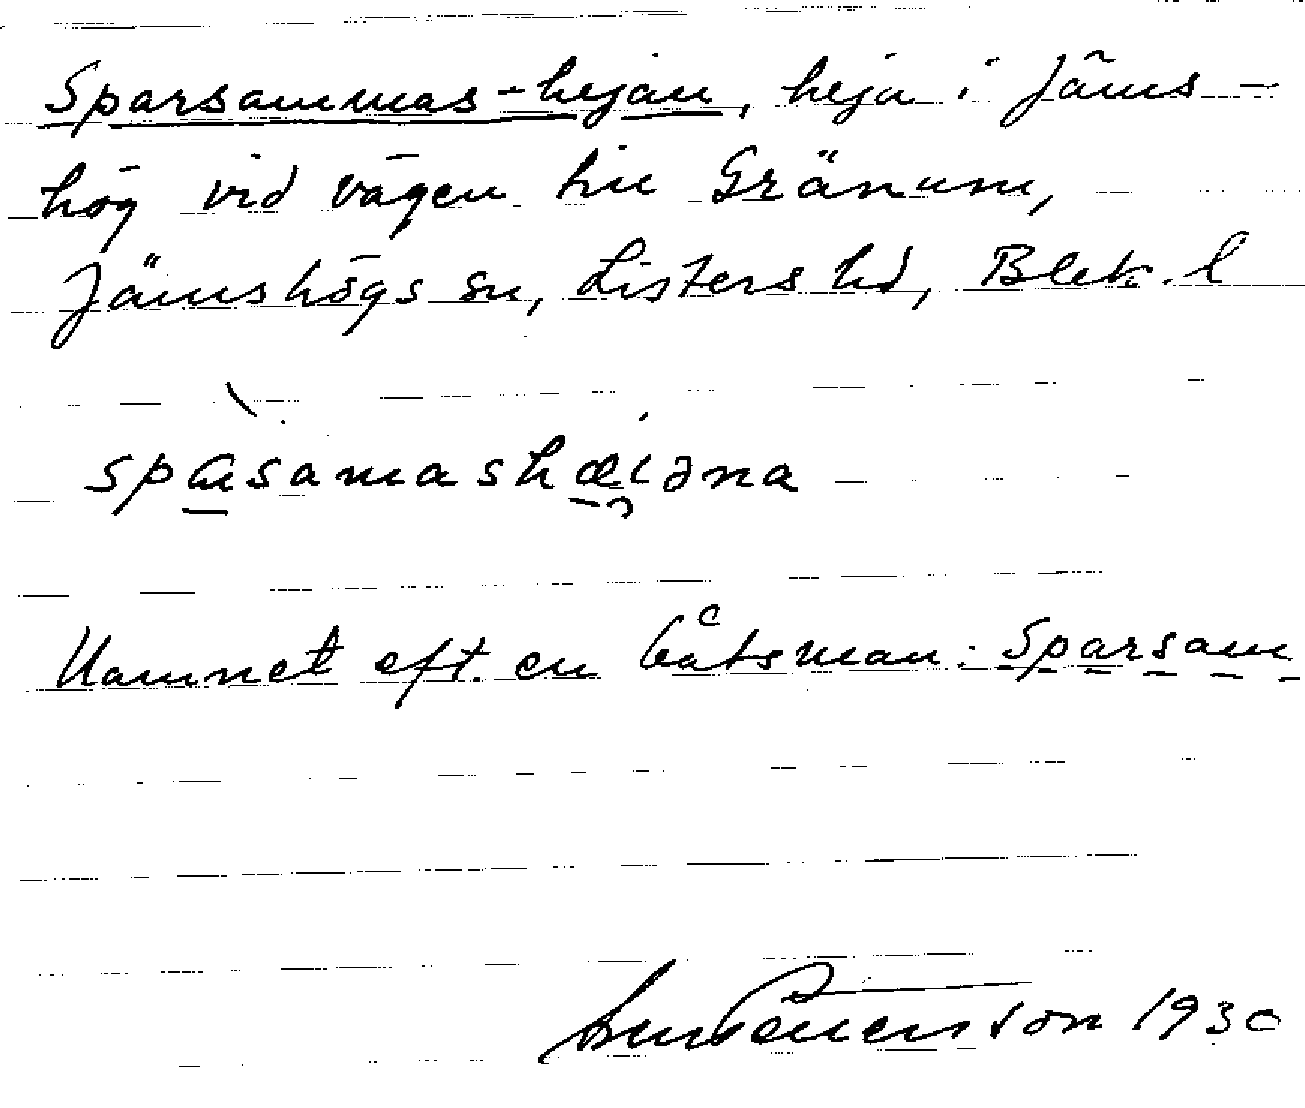 Sparsammas-hejan, heja i Jäms-
hög vid vägen till Gränum,
Jämshögs sn, Listers hd, Blek. l
spɑsamashæiəna
Namnet eft. en båtsman: Sparsam
1930